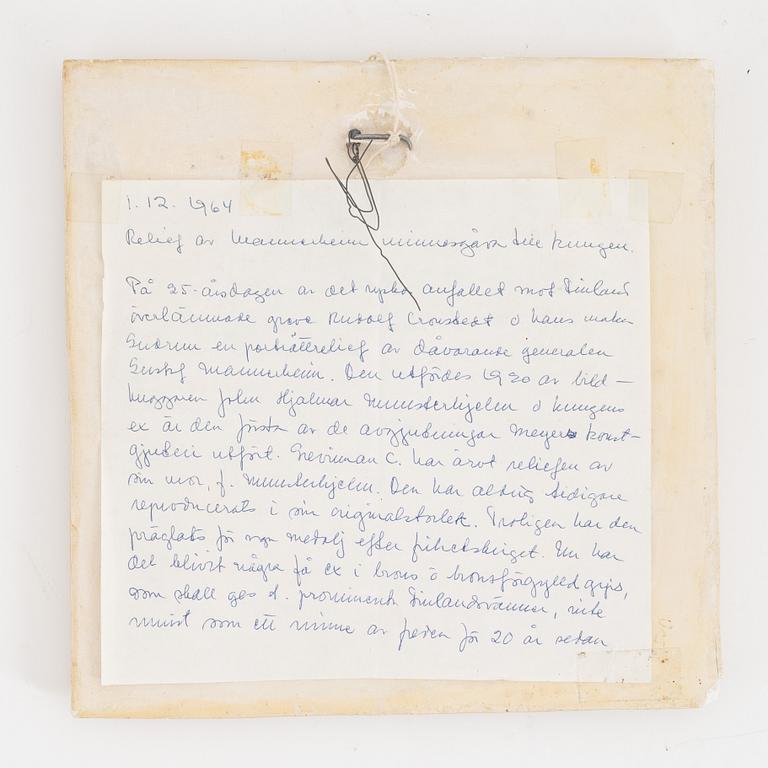 1.12. 1964
Relief av Mannerheim minnesgåva till kungen.
På 25-årsdagen av det ryska anfallet mot Finland
överlämnade greve Rudolf Cronstedt o hans maka
Gudrun en porträttrelief av dåvarande generalen
Gustaf Mannerheim. Den utfördes 1920 av bild-
huggaren John Hjalmar Munsterhjelm o kungens
ex är den första av de avgjutningar Meyers konst-
gjuteri utfört. Grevinnan C. har ärvt reliefen av
sin mor, f. Munsterhjelm. Den har aldrig tidigare
reproducerats i sin originalstorlek. Troligen har den
präglats för ngn medalj efter frihetskriget. Nu har
det blivit några få ex i brons o bronsförgylld gips,
som skall ges t. prominenta Finlandsvänner, inte
minst som ett minne av freden för 20 år sedan